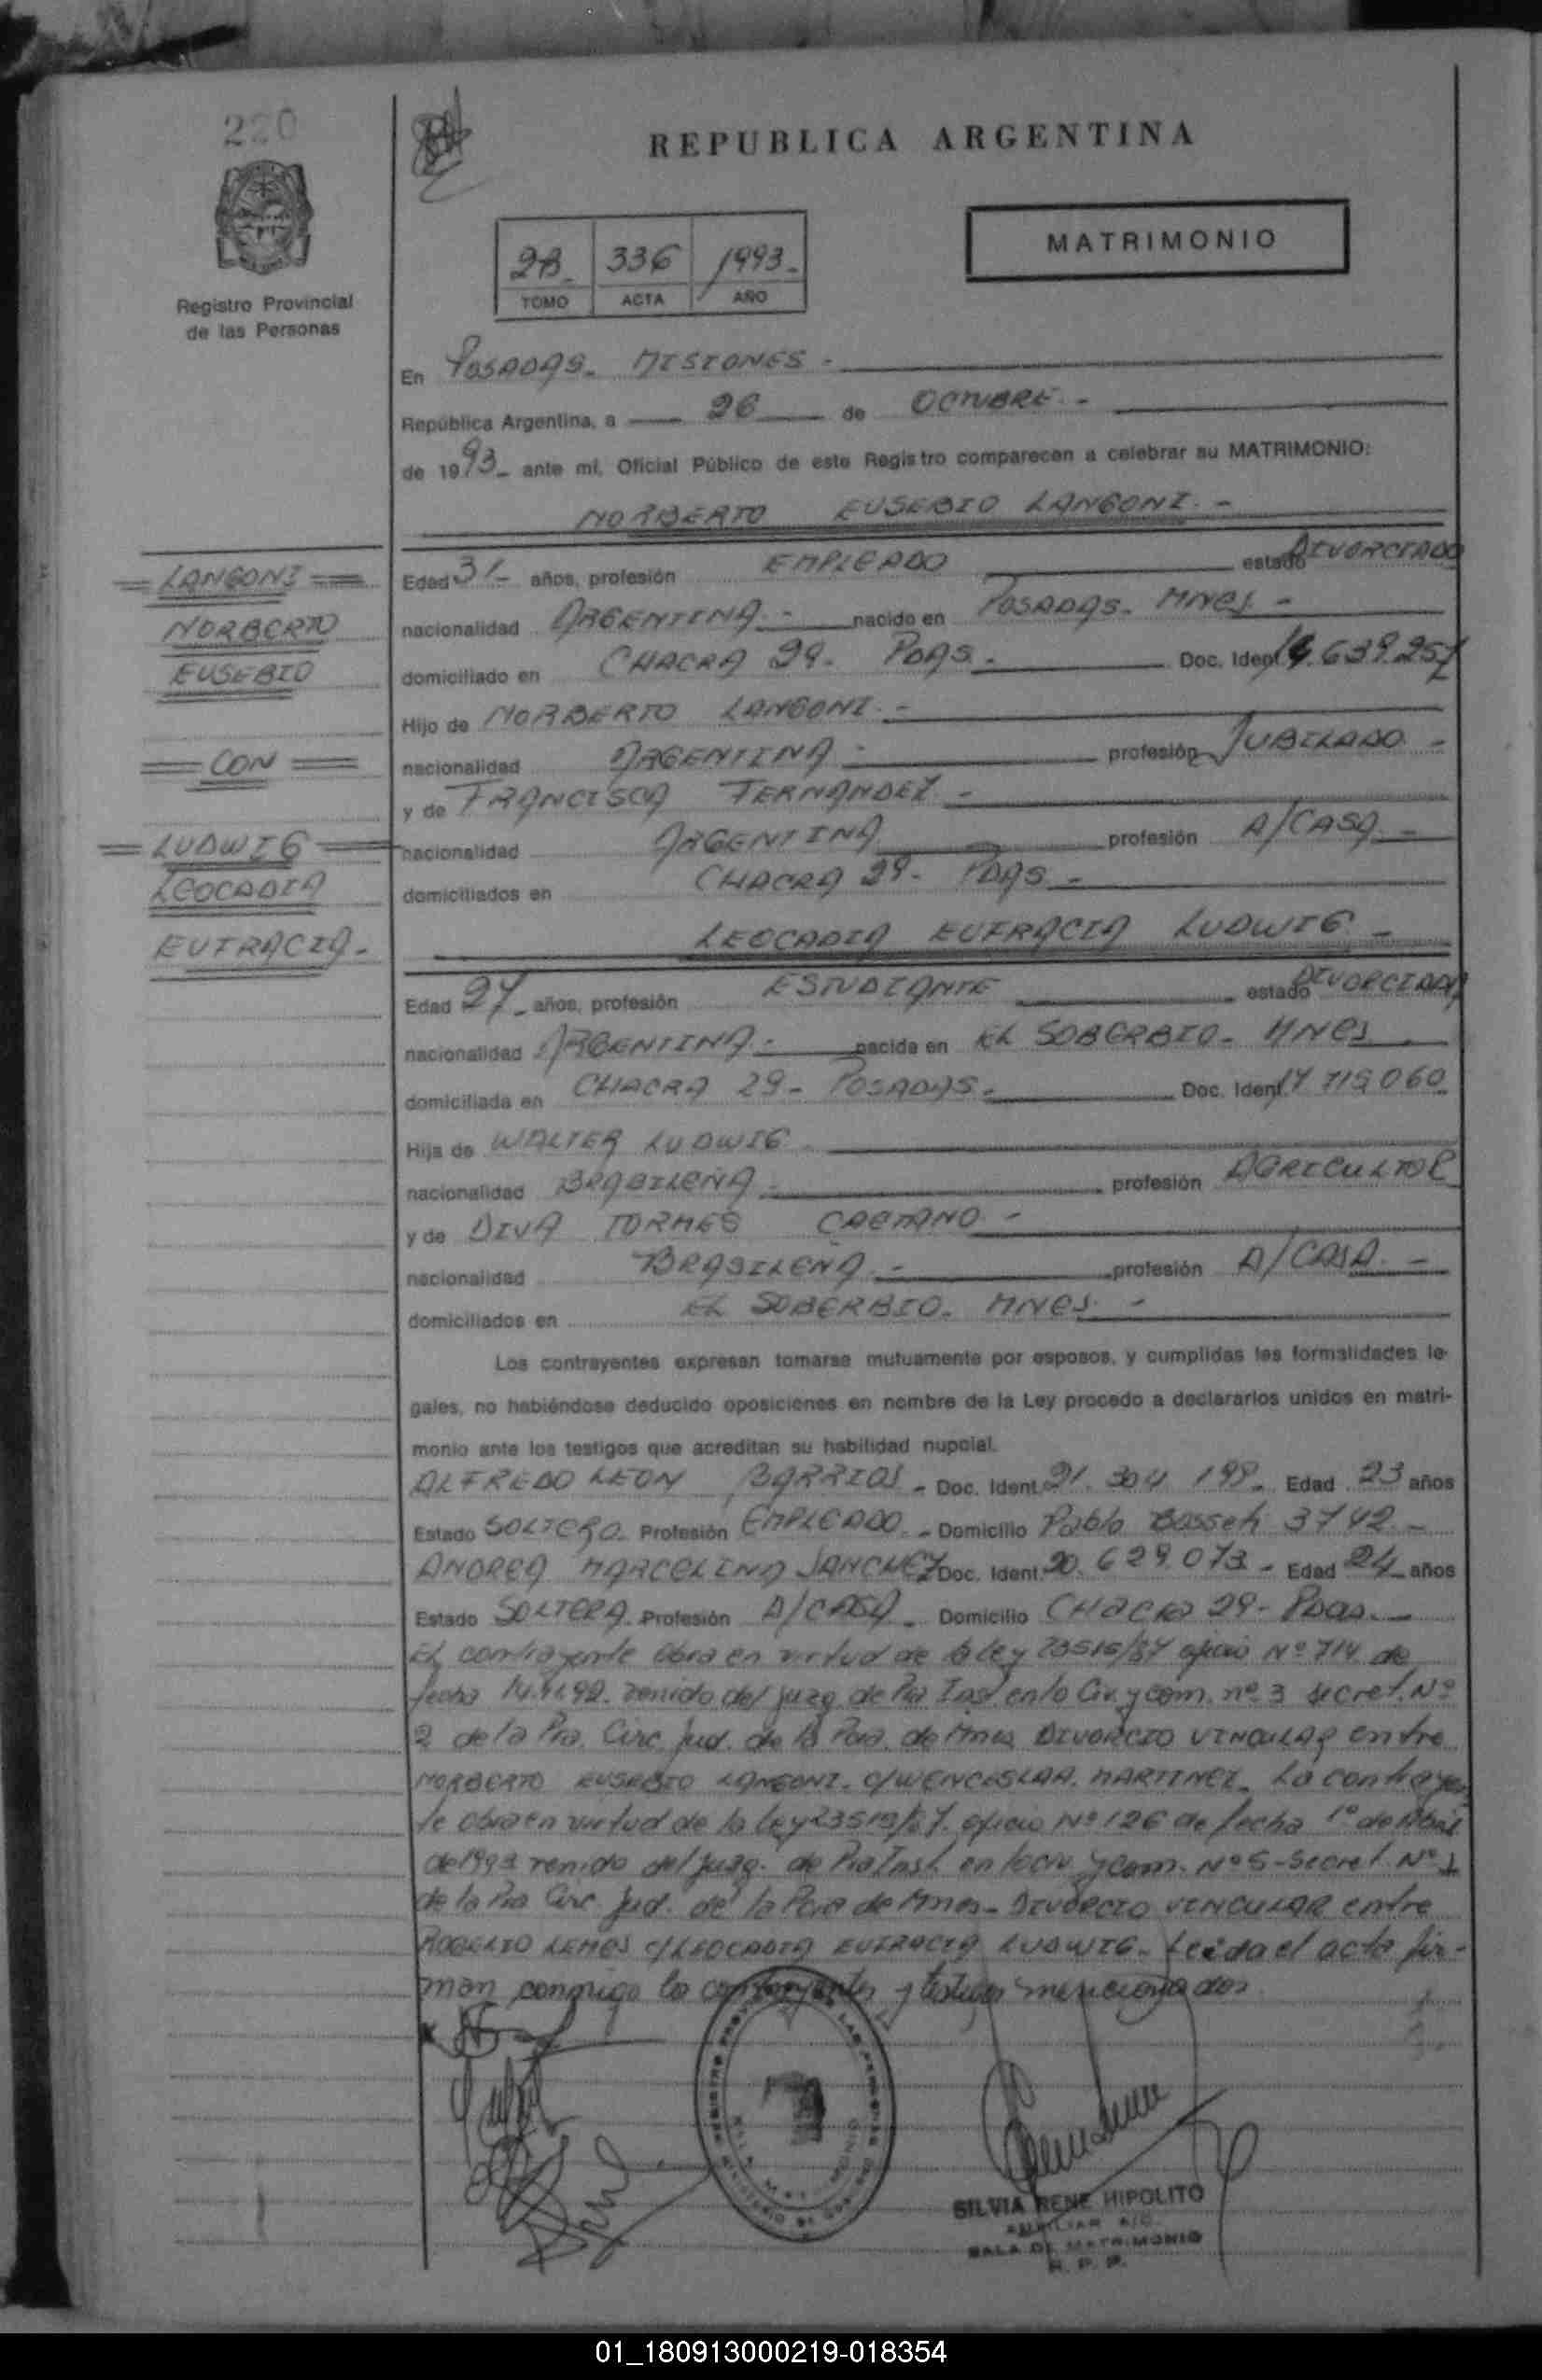 220
REPUBLICA ARGENTINA
MATRIMONIO
2B 336 1993.-
TOMO ACTA AÑO
Registro Provincial
de las Personas
En POSADAS. MISIONES.-
República Argentina, a 26 de OCTUBRE.-
de 1993- ante mí, Oficial Público de este Registro comparecen a celebrar su MATRIMONIO:
NORBERTO EUSEBIO LANGONI.-
LANGONI
NORBERTO
EUSEBIO
CON
LUDWIG
LEOCADIA
EUFRACIA-
Edad 31- años, profesión EMPLEADO estado DIVORCIADO
nacionalidad ARGENTINA.- nacido en POSADAS. MNES-
domiciliado en CHACRA 29. PDAS.- Doc. Ident.
Hijo de NORBERTO LANGONI.-
nacionalidad ARGENTINA- profesión JUBILADO-
y de FRANCISCA FERNANDEZ-
nacionalidad ARGENTINA profesión A/CASA-
domiciliados en CHACRA 29- PDAS-
LEOCADIA EUFRACIA LUDWIG-
Edad 27- años, profesión ESTUDIANTE estado DIVORCIADA
nacionalidad ARGENTINA.- nacida en EL SOBERBIO- MNES
domiciliada en CHACRA 29- POSADAS- Doc. Ident. 17 719.060
Hija de WALTER LUDWIG
nacionalidad BRASILEÑA- profesión AGRICULTOR
y de DIVA TORMES CAETANO-
nacionalidad BRASILEÑA- profesión A/CASA.-
domiciliados en EL SOBERBIO. MNES-
Los contrayentes expresan tomarse mutuamente por esposos, y cumplidas las formalidades le-
gales, no habiéndose deducido oposiciones en nombre de la Ley procedo a declararlos unidos en matri-
monio ante los testigos que acreditan su habilidad nupcial.
ALFREDO LEON BARRIOS- Doc. Ident. 21.304 199- Edad 23 años
Estado SOLTERO. Profesión EMPLEADO.- Domicilio Pablo 3742.-
ANDREA MARCELINA SANCHEZ Doc. Ident. 20.629.073- Edad 24 años
Estado SOLTERA. Profesión A/CASA- Domicilio CHACRA 29- Pdas.-
El contrayente obra en virtud de la ley 23515/87 oficio Nº 714 de
fecha 14.11.92. venido del juzg. de Pra Inst en lo Civ. y com. nº 3 secret. Nº
2 de la Pra. Circ. Jud. de la Pcia. de Mnes DIVORCIO VINCULAR entre
NORBERTO EUSEBIO LANGONI. C/WENCESLAA. MARTINEZ. La contrayen
te obra en virtud de la ley 23515/87. oficio Nº 126 de fecha 1º de Abril
de 1993 venido del juzg. de Pra Inst. en lo civ y com. Nº 5-Secret. Nº 1
de la Pra Circ. Jud. de la Pcia de Mnes- DIVORCIO VINCULAR entre
ROGELIO LEMES C/LEOCADIA EUFRACIA LUDWIG- Leída el acta fir-
man conmigo los contrayentes y testigos mencionados.
SILVIA RENE HIPOLITO
SALA DE MATRIMONIO
R. P. P.
01_180913000219-018354